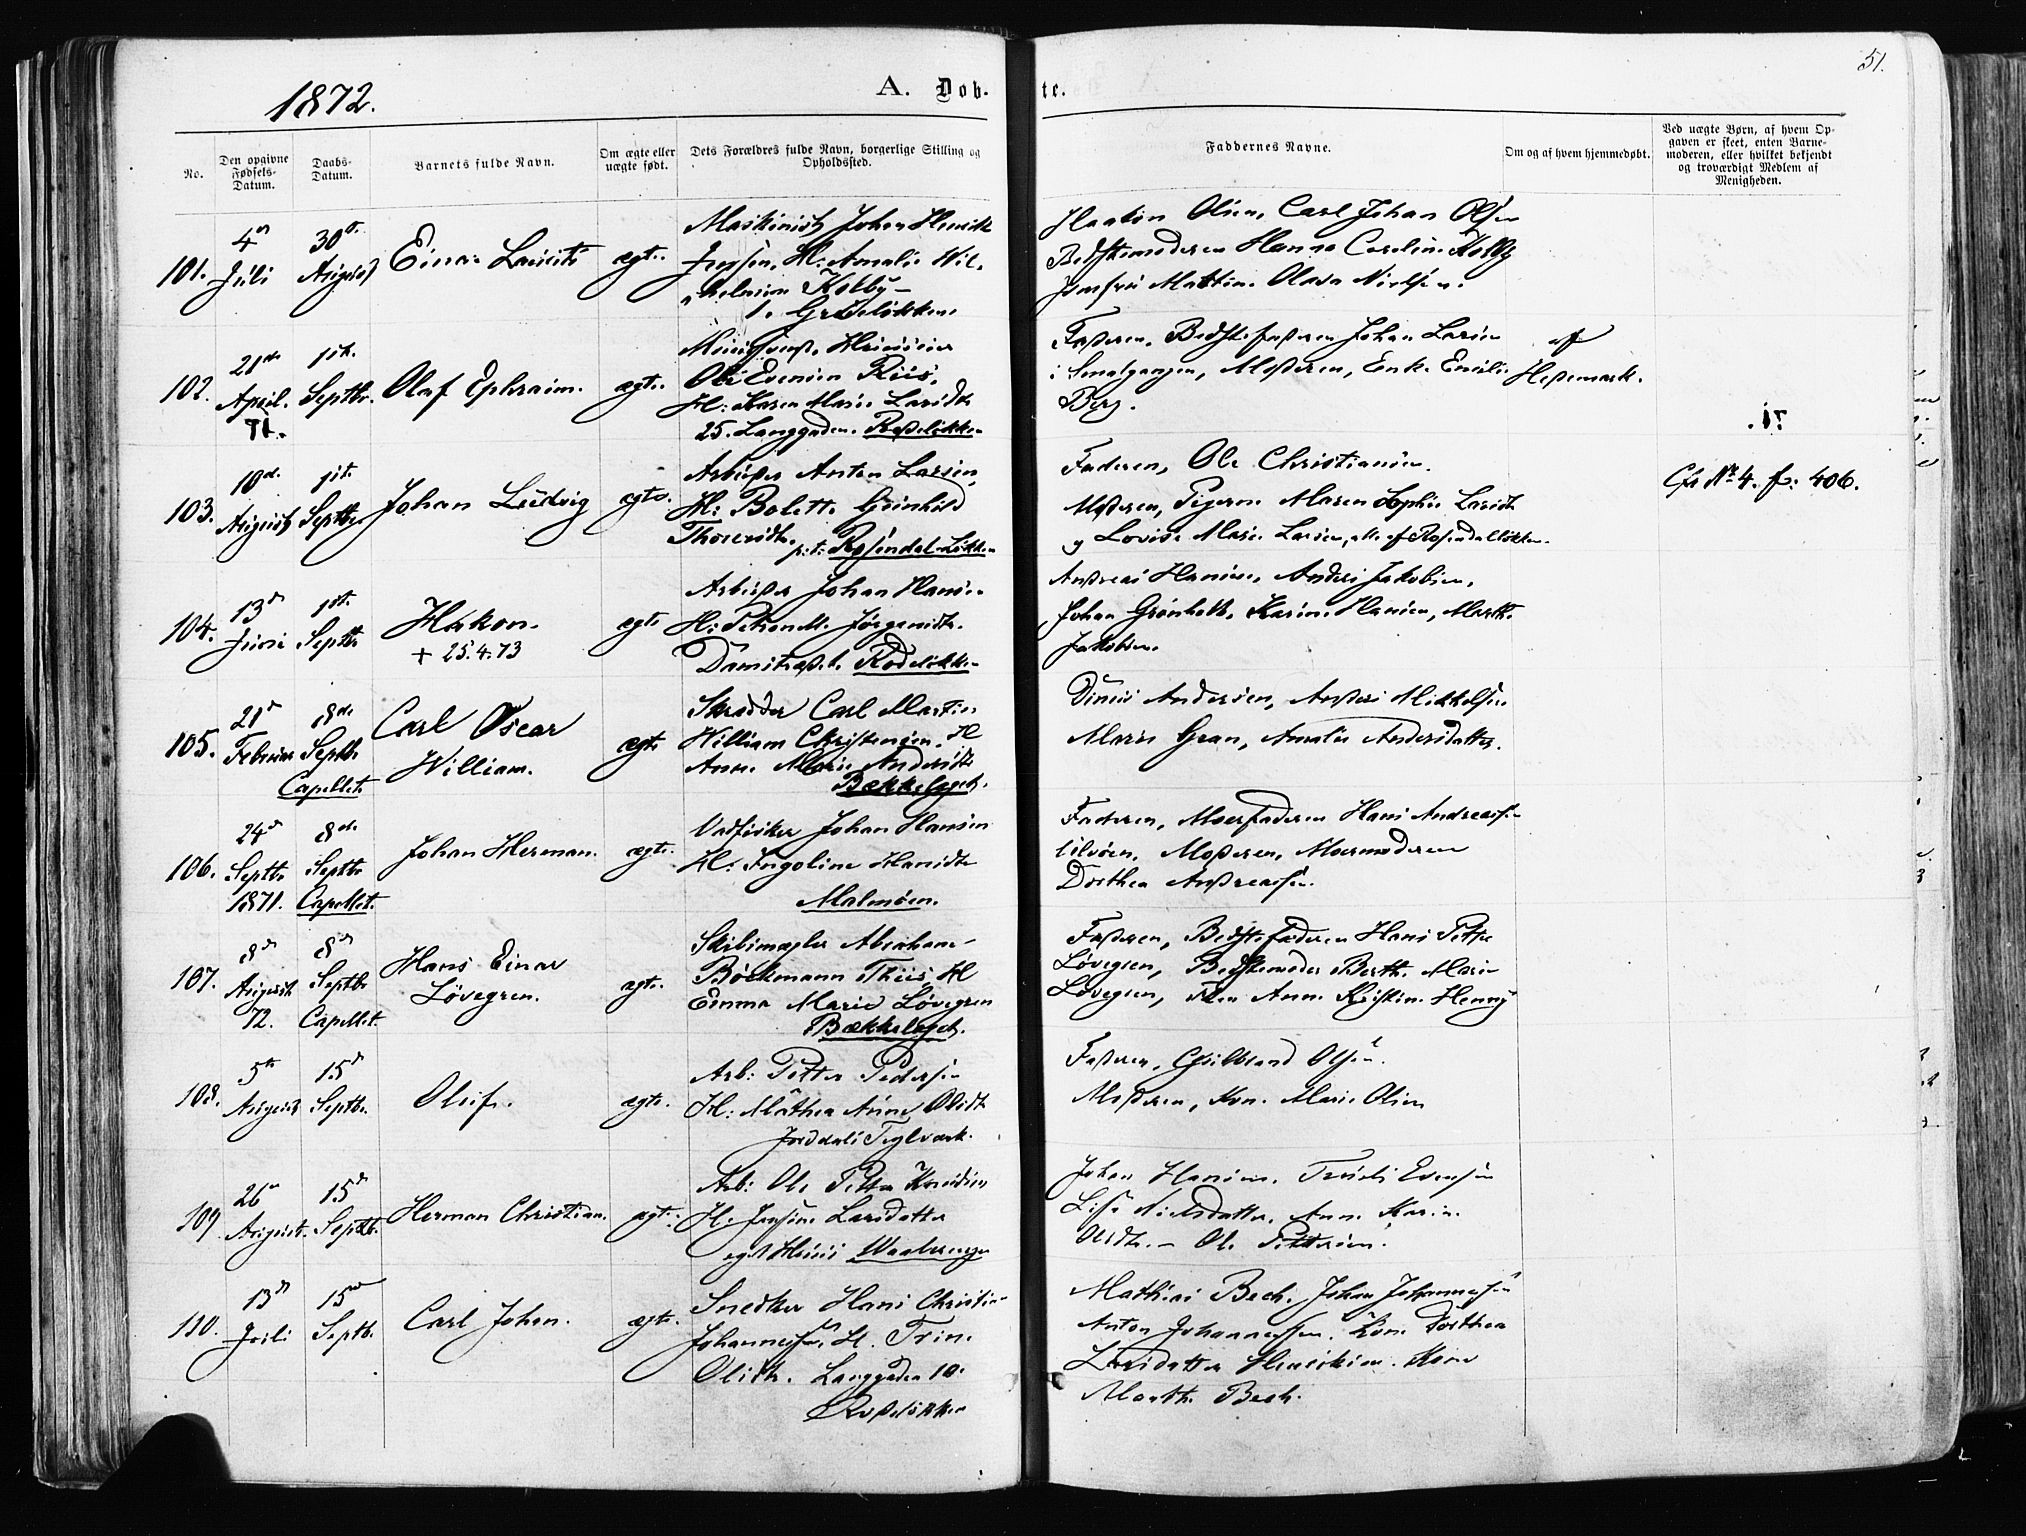 1872.
A. Døb-
te.
51.
No.
Den opgivne Fødsels-Datum.
Daabs-Datum.
Barnets fulde Navn.
Om ægte eller uægte født.
Dets Forældres fulde Navn, borgerlige Stilling og Opholdssted.
Faddernes Navne.
Om og af hvem hjemmedøbt.
Ved uægte Børn, af hvem Op-
gaven er skeet, enten Barne-
moderen, eller hvilket bekjendt
og troværdigt Medlem af
Menigheden.
101.
4
Juli
30
August
Einar
ægte
Maskinist Johan Henrik
Jensen, H: Amalie Wil-
Kolby
Olsen, Carl Johan Olsen
Bedstemoderen Hanna Caroline Kolby
Jomfru Olava Nielsen.
102.
21de
April.
71.
1ste
Septbr.
Olaf Ephraim.
ægte
Ole Evensen Riis,
H: Karen Marie Larsdtr
25. Langgaden. Rodeløkken
Faderen, Bedstefaderen Johan Larsen
i Smalgangen, Moderen, Enke Emilie
Berg.
af
Hedemark.
103.
10de
August
1ste
Septbr
Johan Ludvig
ægte.
Arbeider Anton Larsen,
H: Bolette Gunhild
p.t. Rosendal-Løkken
Faderen, Ole Christiansen.
Moderen, Pigerne Maren Sophie Larsdtr
og Lovise Marie Larsen, alle af Rosendalløkken.
Cfr No 4. f: 406.
104.
13
Juni
1ste
Septbr
Håkon.
+ 25.4.73
ægte
Arbeider Johan Hansen
H: Jørgensdtr.
Rodeløkken
Andreas Hansen, Anders Jakobsen,
Johan Grønholt, Karine Hansen, Marthe
Jakobsen.
105.
21
Februar
8de
Septbr
Capellet
Carl Oscar
William.
ægte
Skrædder Carl Martin
William Christensen. H
Anne Marie Andersdtr
Bækkelaget.
Andersen, Anders Mikkelsen
Marie Gran, Amalie Andersdatter.
106.
24
Septbr
1871.
8de
Septbr
Capellet.
Johan Herman.
ægte.
Johan Hansen
H: Ingoline Hansdtr
Malmøen.
Faderen, Morfaderen Hans Andreassen
Ulvøen, Moderen, Mormoderen
Dorthea Andreassen.
107.
8
August
72.
8
Septbr
Capellet.
Hans Einar
Løvegren.
ægte.
Skibsmægler Abraham
Böckmann Thiis, H
Emma Marie Løvegren
Bækkelaget.
Faderen, Bedstefaderen Hans Petter
Løvegren, Bedstemoder Berthe Marie
Løvegren, Anne Kristine Henny
108.
5te
August
15
Septbr.
Oluf.
ægte.
Arb: Petter Pedersen
H: Mathea Anne Olsdtr
Jordals Teglværk.
Faderen, Gulbrand Olsen.
Moderen, Kone Marie Olsen
109
26
August.
15
Septbr.
Herman Christian.
ægte.
Arb: Ole Petter Knudsen
H: Larsdatter
eget Huus Waalerengen
Johan Hansen. Evensen
Lise Nielsdatter, Anne Karine
Olsdtr. - Ole Pettersen.
110.
13
Juli
15
Septbr.
Carl Johan.
ægte.
Snedker Hans Christian
Johannessen, H. Trine
Olsdtr. Langgaden 10.
Rodeløkken
Mathias Bech. Johan Johannessen
Anton Johannessen. Kone Dorthea
Larsdatter Kone
Marthe Bech.